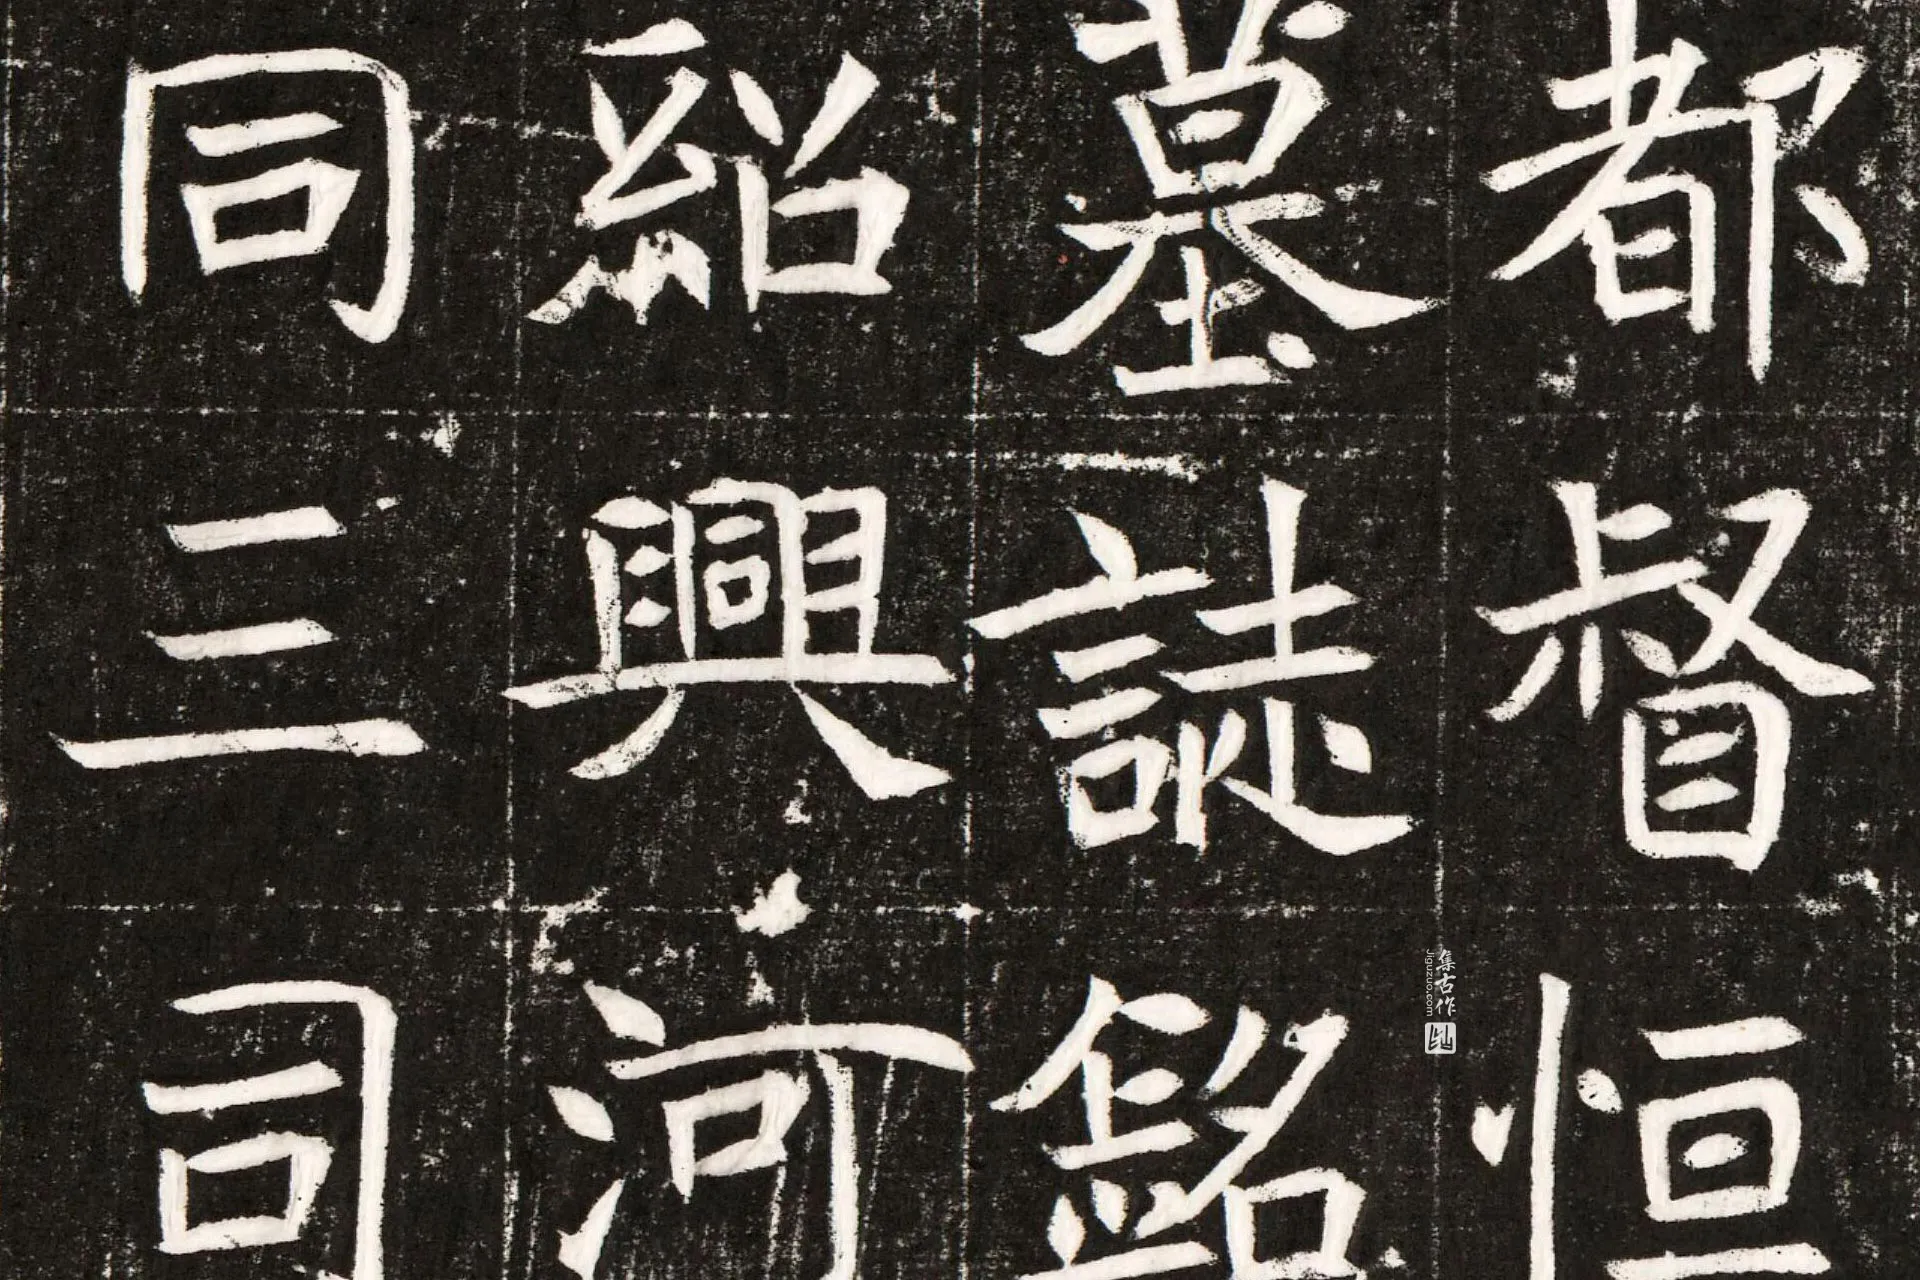 都督恒
墓誌銘
紹興河
同三司
集古作
Jiguzuo.com